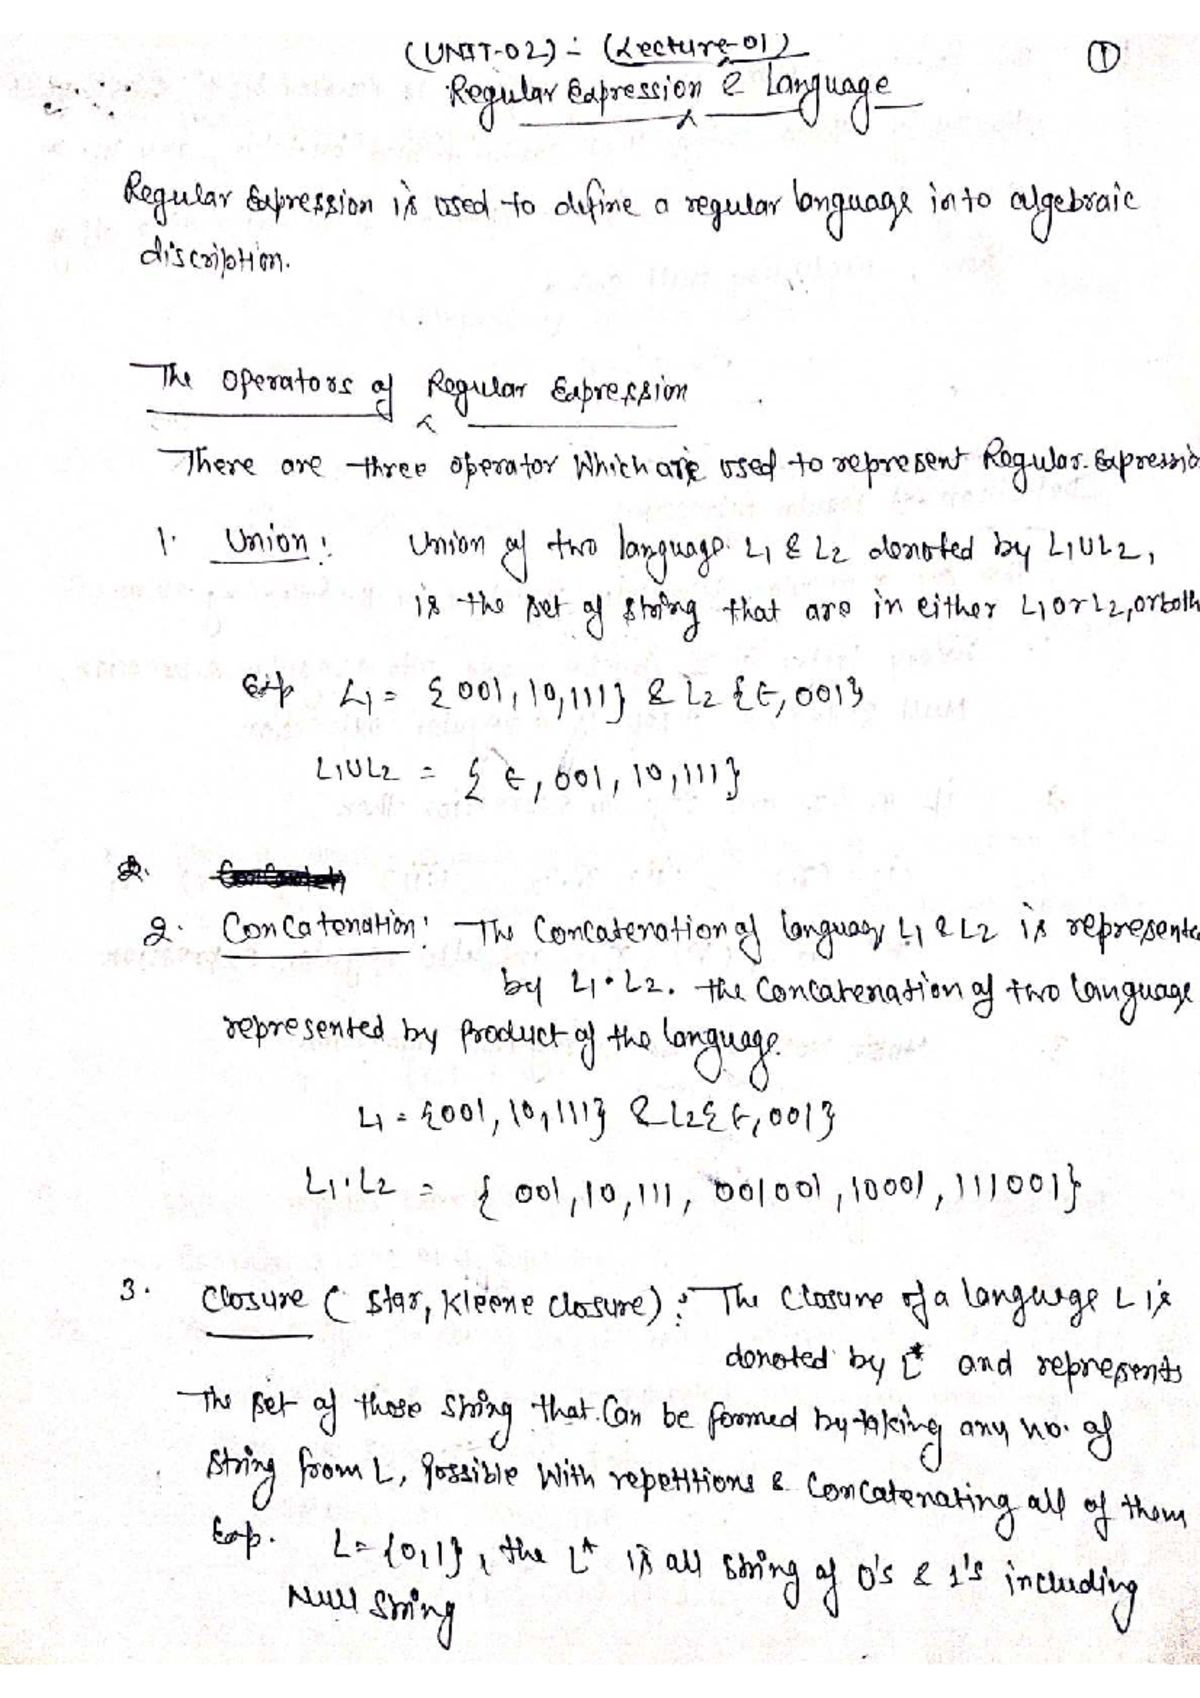 (UNIT-02) :- (Lecture-01)
①
Regular Expression & Language
Regular Expression is used to define a regular language into algebraic
discription.
The Operators of Regular Expression
There are three operator which are used to represent Regular Expressio
1. Union : Union of two language L1 & L2 denoted by L1UL2,
is the set of string that are in either L1 or L2, or both
Exp L1 = {001, 10, 111} & L2 {ϵ, 001}
L1UL2 = {ϵ, 001, 10, 111}
2.
2. Concatenation : The Concatenation of language L1 & L2 is represente
by L1·L2. the Concatenation of two language
represented by Product of the language.
L1 = {001, 10, 111} & L2{ϵ, 001}
L1·L2 = {001, 10, 111, 001001, 10001, 111001}
3. Closure ( Star, Kleene closure) : The Closure of a language L is
denoted by L* and represents
The set of those string that can be formed by taking any no. of
string from L, Possible with repetitions & Concatenating all of them
Exp. L = {0,1}, the L* is all string of 0's & 1's including
Null string